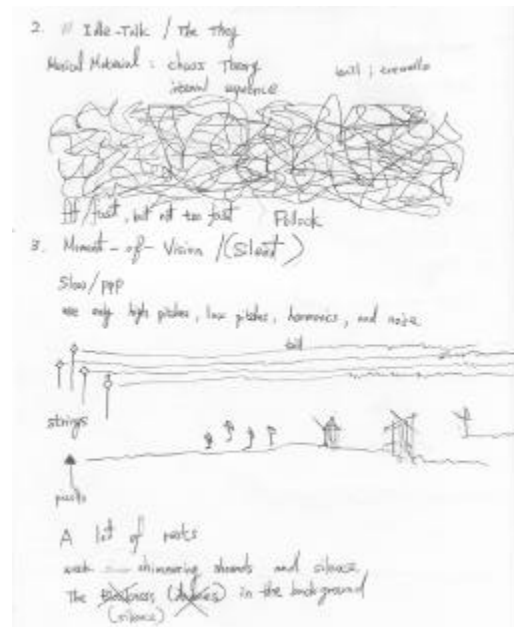 2. // Idle-Talk / The They
Musical Material : chaos Theory
interval sequence
trill ; tremollo
fff/fast, but not too fast Pollock
3. Moment-of-Vision /(Silent)
Slow/ppp
use only high pitches, low pitches, harmonics, and noise
trill
strings
A lot of rests
shimmering shounds and silence
The in the background
(silence)